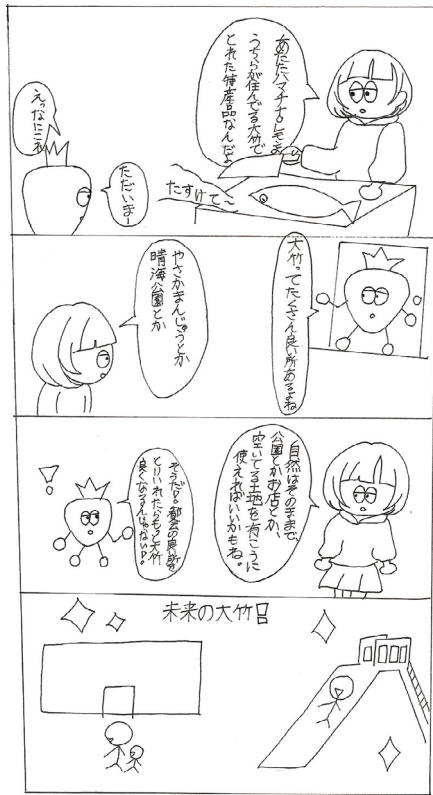 あたたハマチもレモンも
うちらが住んでる大竹で
とれた特産品なんだよ
たすけて〜
ただいまー
えっなにこれ
大竹ってたくさん良い所あるよね
やさかまんじゅうとか
晴海公園とか
自然はそのままで、
公園とかお店とか、
空いてる土地を有こうに
使えればいいかもね。
そうだ!都会の良い所を
とりいれたらもっと大竹
良くなるんじゃない?
!
未来の大竹